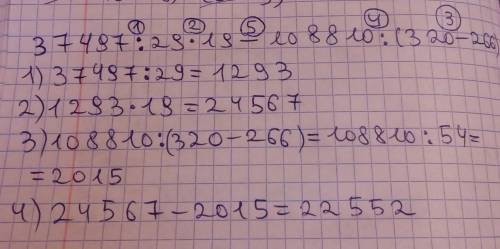 ① ② ⑤ ④ ③
37497:29·19-108810:(320-266)
1) 37497:29=1293
2) 1293·19=24567
3) 108810:(320-266)=108810:54=
=2015
4) 24567-2015=22552